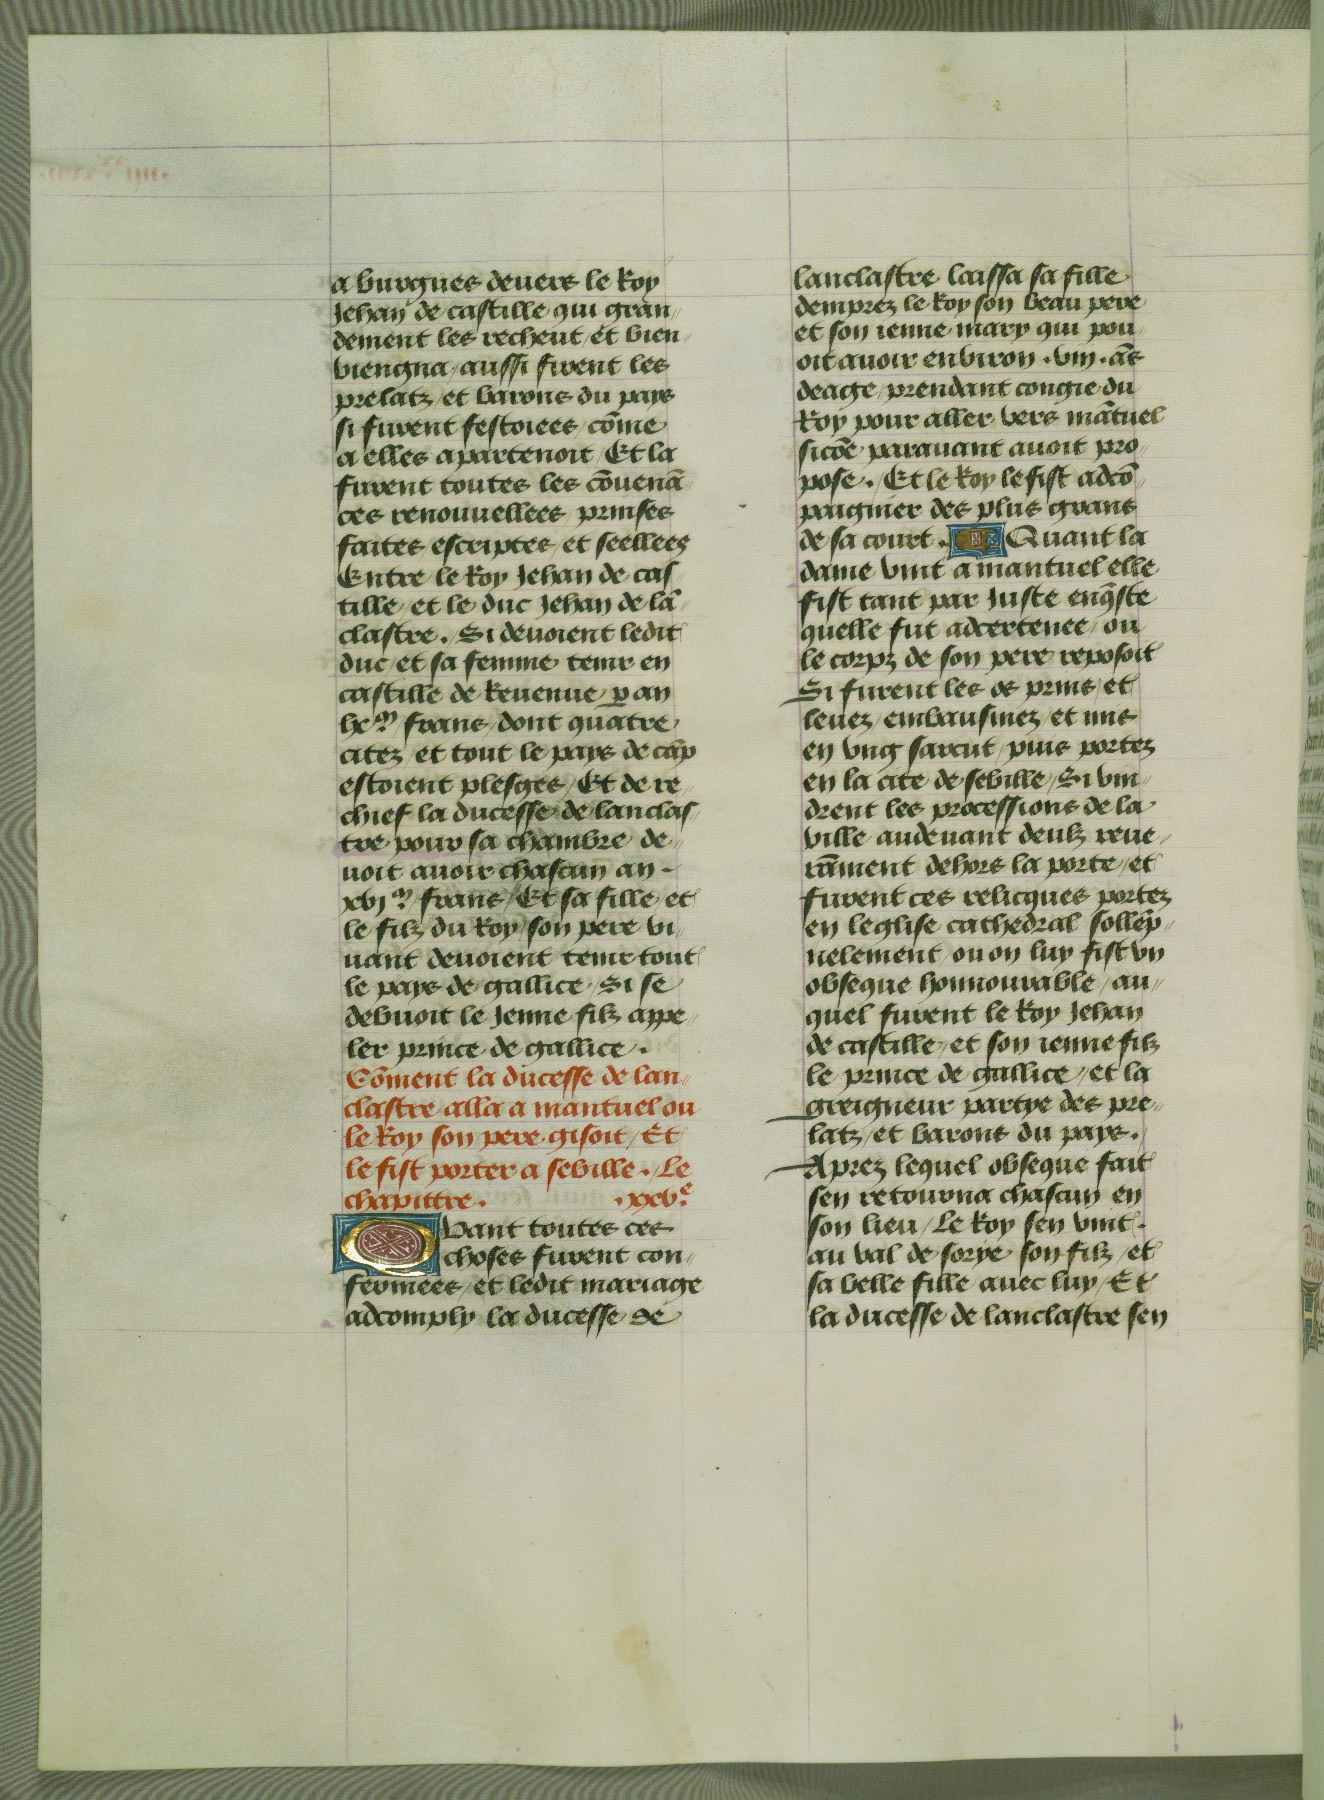 a burgues deuers le Roy
Jehan de castille qui gran
dement les recheut / et bien
viengna / aussi firent les
prelatz / et barons du pays
si furent festoiees / cōme
a elles apartenoit / Et la
furent toutes les cōuenā
ces renouuellees / prinses
faites escriptes / et seellees
Entre le Roy Jehan de cas
tille / et le duc Jehan de lā
clastre . Si deuoient ledit
duc / et sa femme tenir en
castille de Reuenue p an
frans / dont quatre
citez / et tout le pays de cāp
estoient plesges / Et de re
chief la ducesse de lanclas
tre pour sa chambre de
uoit auoir chascun an .
xvi m frans / Et sa fille et
le filz du Roy / son pere vi
uant deuoient tenir tout
le pays de gallice / Si se
debuoit le Jenne filz appe
ler prince de gallice .
Cōment la ducesse de lan
clastre alla a mantuel ou
le Roy son pere gisoit / Et
le fist porter a seuille . Le
chapittre . . xxv e
Quant toutes ces
choses furent con
fermees / et ledit mariage
adcomply la ducesse de
lanclastre laissa sa fille
demprez le Roy son beau pere
et son ienne mary qui pou
oit auoir enuiron . viii . ās
deage / prendant congie du
Roy pour aller vers mātuel
sicōe parauant auoit pro
pose . Et le Roy le fist adcō
paignier des plus grans
de sa court . Quant la
dame vint a mantuel elle
fist tant par Juste enq̄ste
quelle fut adcertenee / ou
le corpz de son pere reposoit
Si furent les os prins / et
leuez / embausmez / et mis
en vng sarcut / puis portez
en la cite de seuille / Si vin
drent les processions de la
ville audeuant deulz reue
rāment dehors la porte / et
furent ces relicques portez
en leglise cathedral sollēp
nelement / ou on luy fist vn
obseque honnourable / au
quel furent le Roy Jehan
de castille / et son ienne filz
le prince de gallice / et la
greigneur partye des pre
latz / et barons du pays .
Aprez lequel obseque fait
sen retourna chascun en
son lieu / Le Roy sen vint
au val de sorye son filz / et
sa belle fille auec luy / Et
la ducesse de lanclastre sen